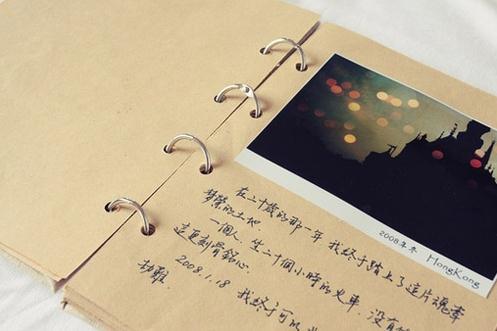 2008年冬 HongKong
在二十歲的那一年 我終于踏上了這片魂牽
夢縈的土地
一個人. 坐二十個小時的火車. 沒有
這更刻骨銘心.
2008.1.18
我終于可以
劫難.